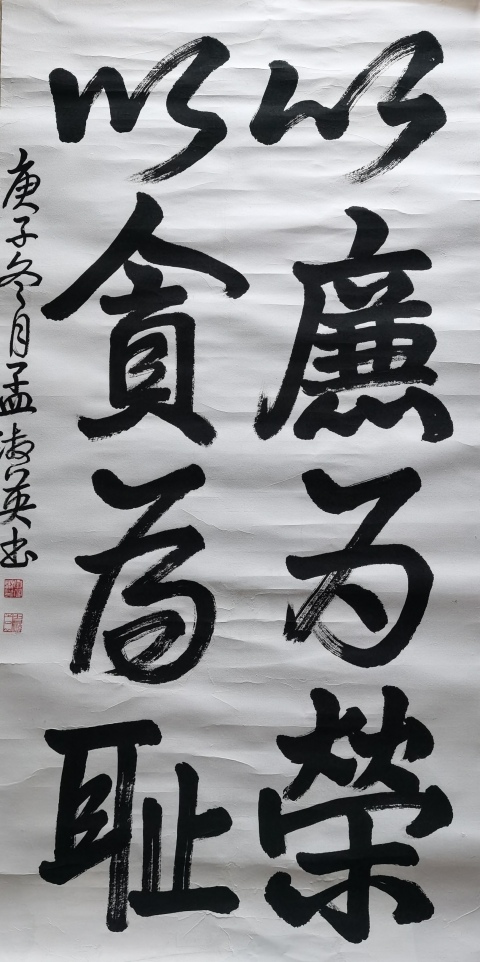 以廉为荣
以贪為耻
庚子冬月孟淑英书